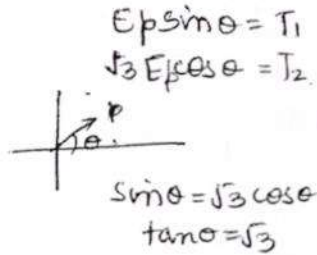 Epsinθ = T₁
√3 Epcosθ = T₂
p
θ.
sinθ = √3 cosθ
tanθ = √3